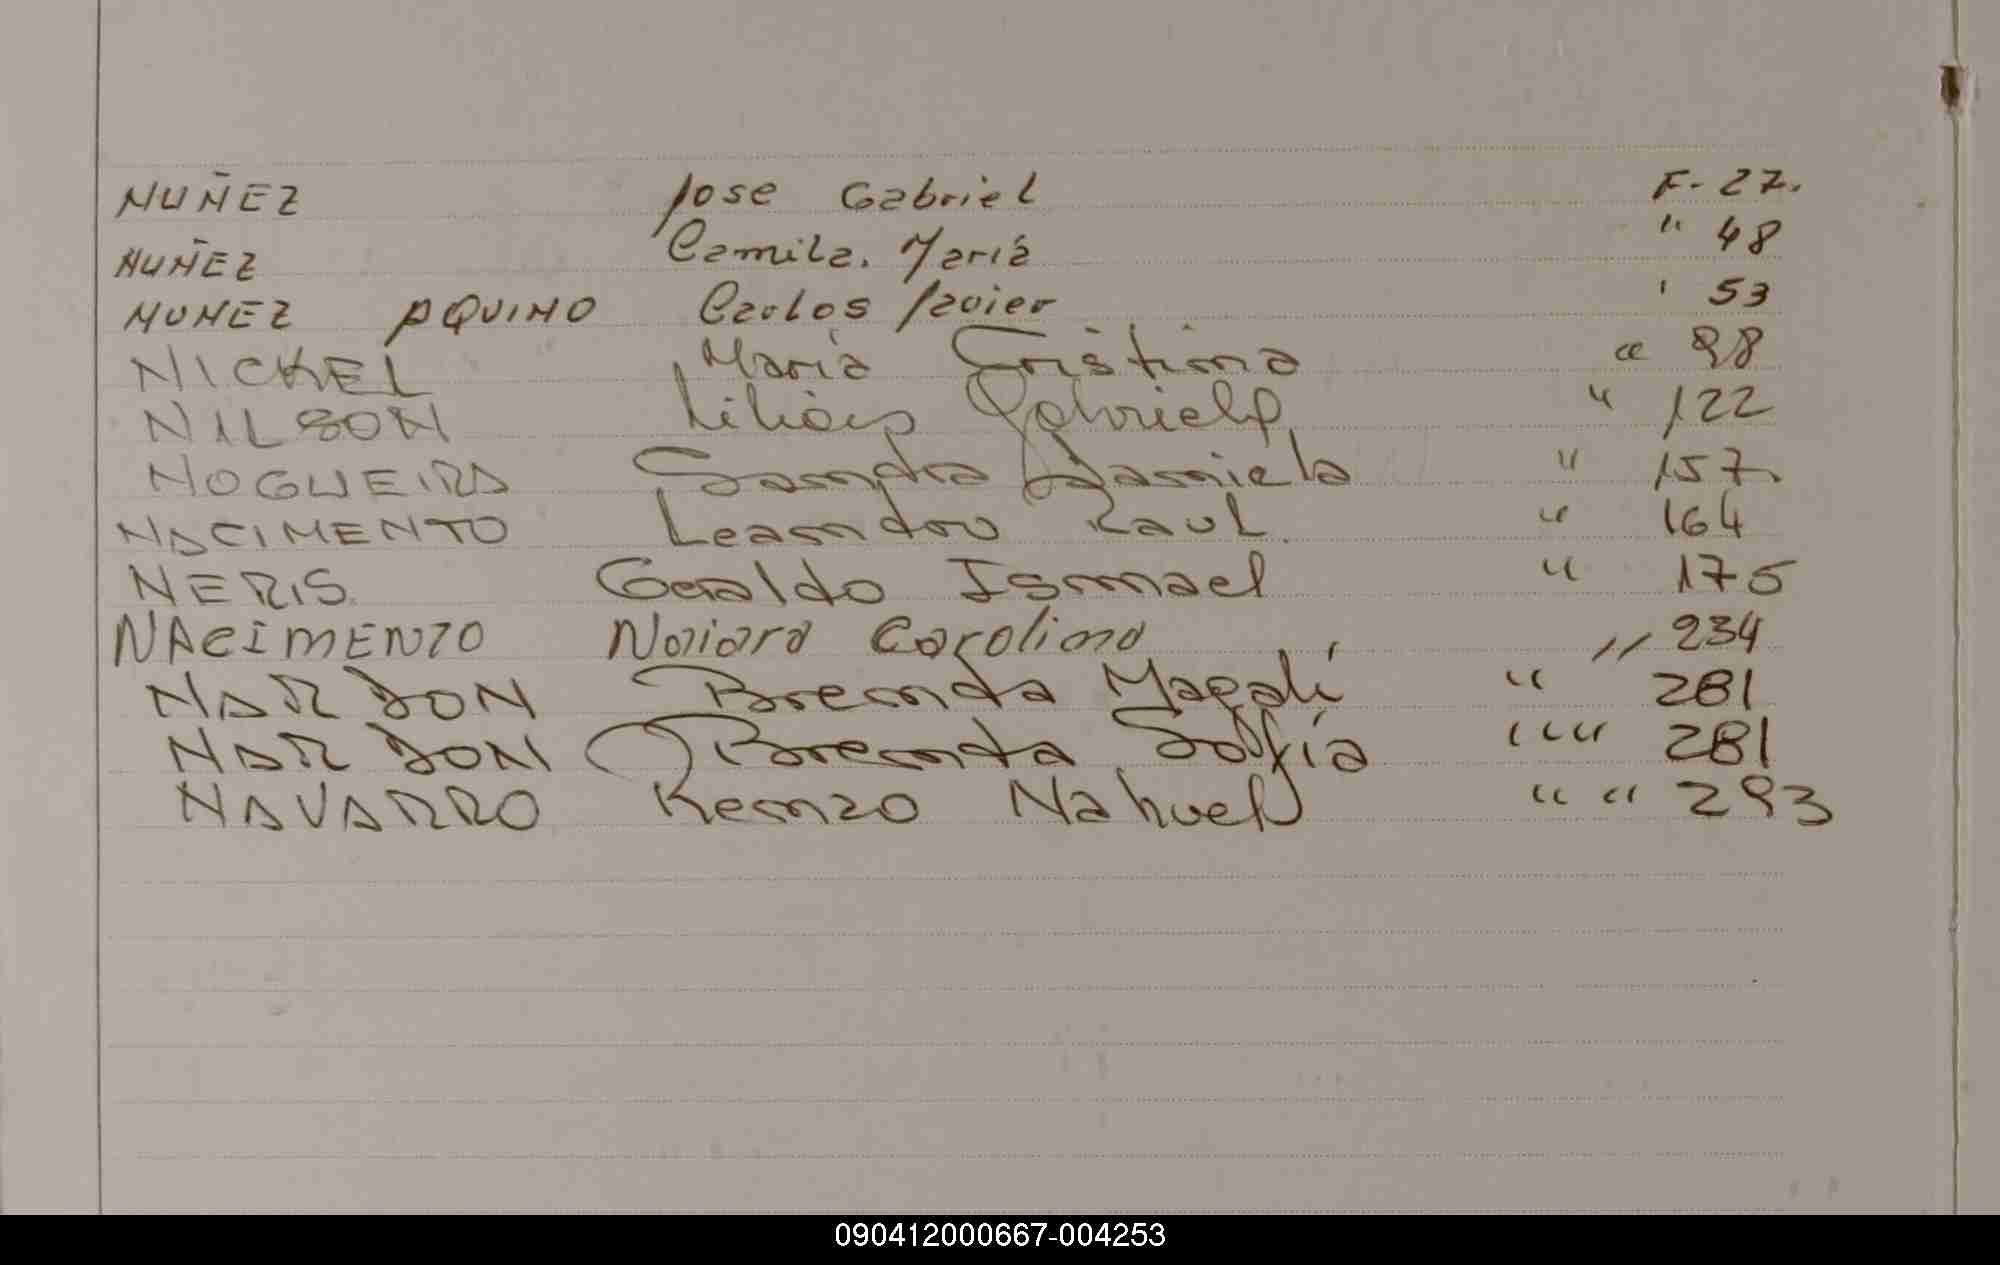 NUÑEZ Jose Gabriel F. 27.
NUÑEZ Camila. María " 48
NUNEZ AQUINO Carlos Javier ' 53
NICKEL María Cristina " 98
NILSON Gabriela " 122
NOGUEIRA Sandra Daniela " 157
NACIMENTO Leandro Raul. " 164
NERIS Geraldo Ismael " 175
NACIMENTO Naiara Carolina " 234
NARDON Brenda Magalí " 281
NARDON Brenda Sofía "" 281
NAVARRO Renzo Nahuel " " 293
090412000667-004253